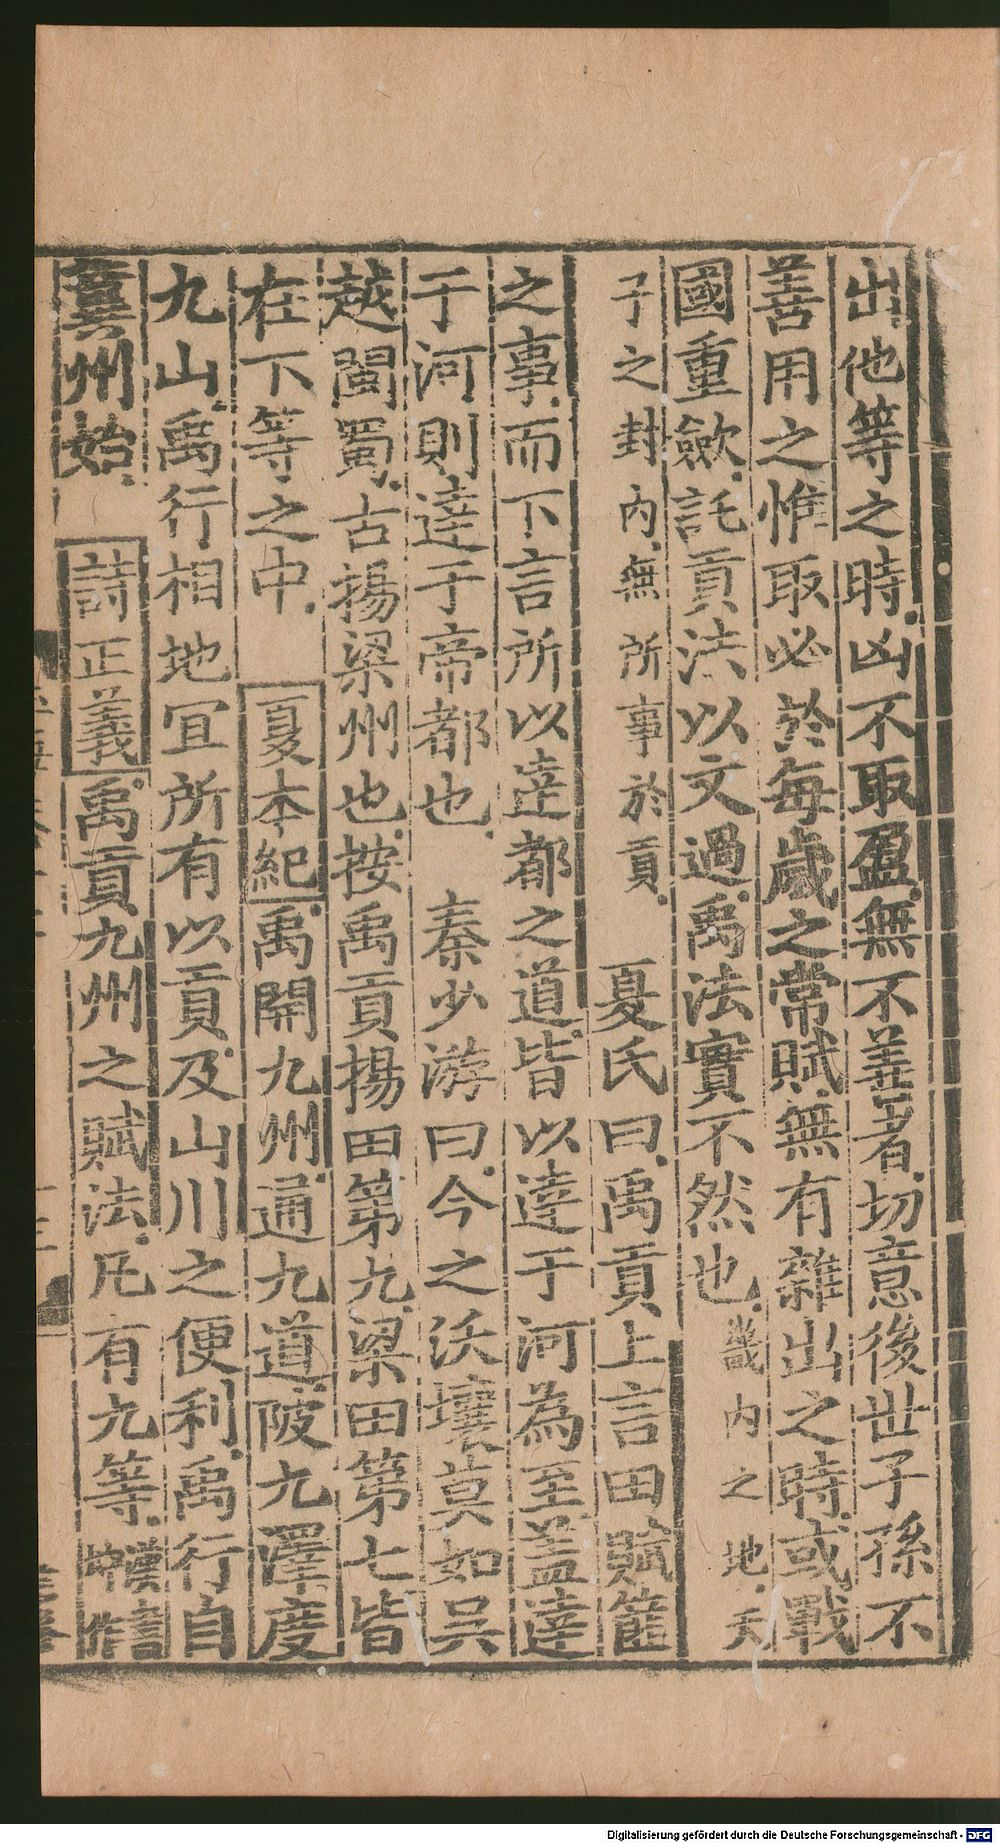 出他等之時凶不取盈無不善者切意後世子孫不
善用之惟取必於每歲之常賦無有雜出之時或戰
國重歛託貢法以文過禹法實不然也畿内之地天
子之封内無所事於貢 夏氏曰禹貢上言田賦篚
之事而下言所以達都之道皆以達于河為至盖達
于河則達于帝都也 秦少游曰今之沃壤莫如吴
越閩蜀古揚梁州也按禹貢揚田第九梁田第七皆
在下等之中 夏本紀禹開九州通九道陂九澤度
九山禹行相地宜所有以貢及山川之便利禹行自
兾州始 詩正義禹貢九州之賦法凡有九等漢書
Digitalisierung gefördert durch die Deutsche Forschungsgemeinschaft - DFG